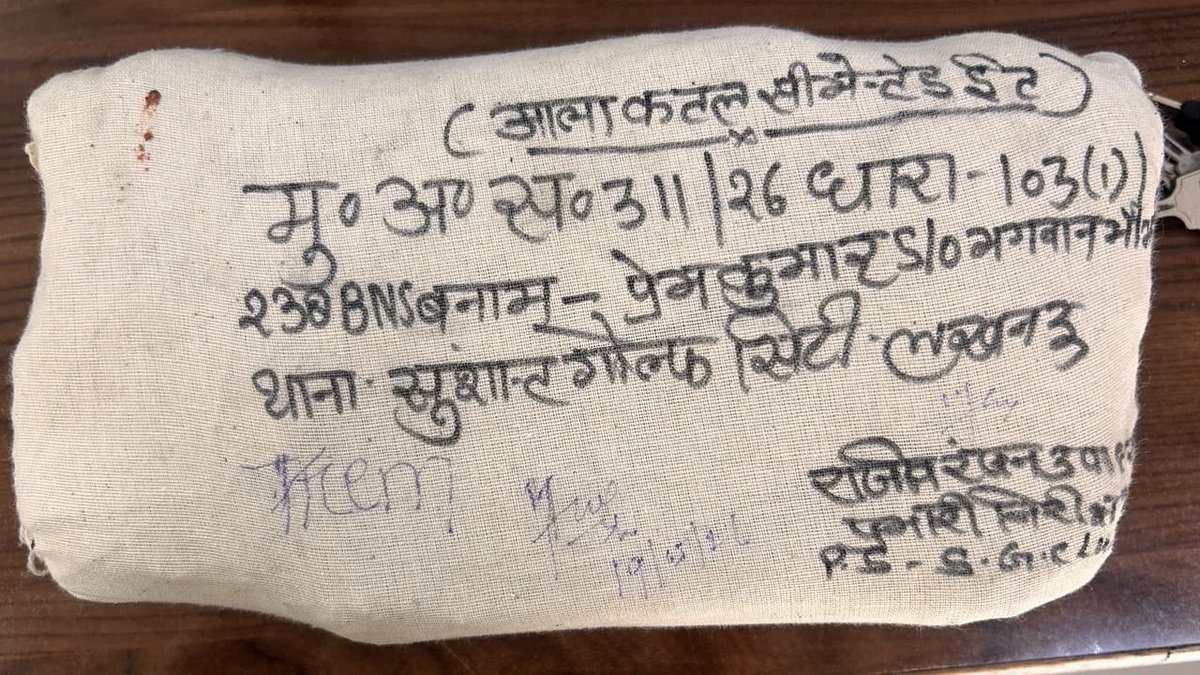 ( आला कतल सीमेन्टेड ईट )
मु० अ० स० 311/26 धारा - 103(1)
238 BNS बनाम - प्रेम कुमार S/O भगवान
थाना - सुशान्त गोल्फ सिटी - लखनउ
Prem
19/05/26
रंजन उपा
प्रभारी निरी
P.S - S.G.C